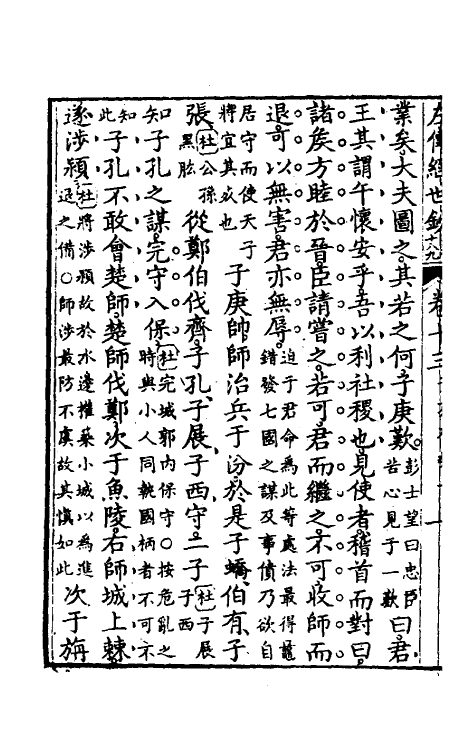 左傳經世鈔十九 卷十三
業矣大夫圖之其若之何子庚歎彭士望曰忠臣苦心見于一歎曰君
王其謂午懷安乎吾以利社稷也見使者稽首而對曰
諸侯方睦於晉臣請嘗之若可君而繼之不可收師而
退可以無害君亦無辱迫于君命為此等處法最得鼂錯發七國之謀及事僨乃欲自
居守而使天子將宜其敗也子庚帥師治兵于汾於是子蟜伯有子
張杜公孫黑肱從鄭伯伐齊子孔子展子西守二子杜子展子西
知子孔之謀完守入保杜完城郭內保守○按危亂之時與小人同執國柄者不可不
知此子孔不敢會楚師楚師伐鄭次于魚陵右師城上棘
遂涉潁杜將涉潁故於水邊權築小城以為進退之備○師涉最防不虞故其慎如此次于旃